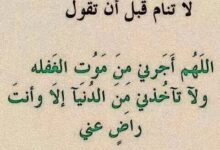 لا تنام قبل أن تقول
اللهم أجرني من موت الغفله
ولآ تآخذني من الدنيآ إلآ وأنت
راضٍ عني